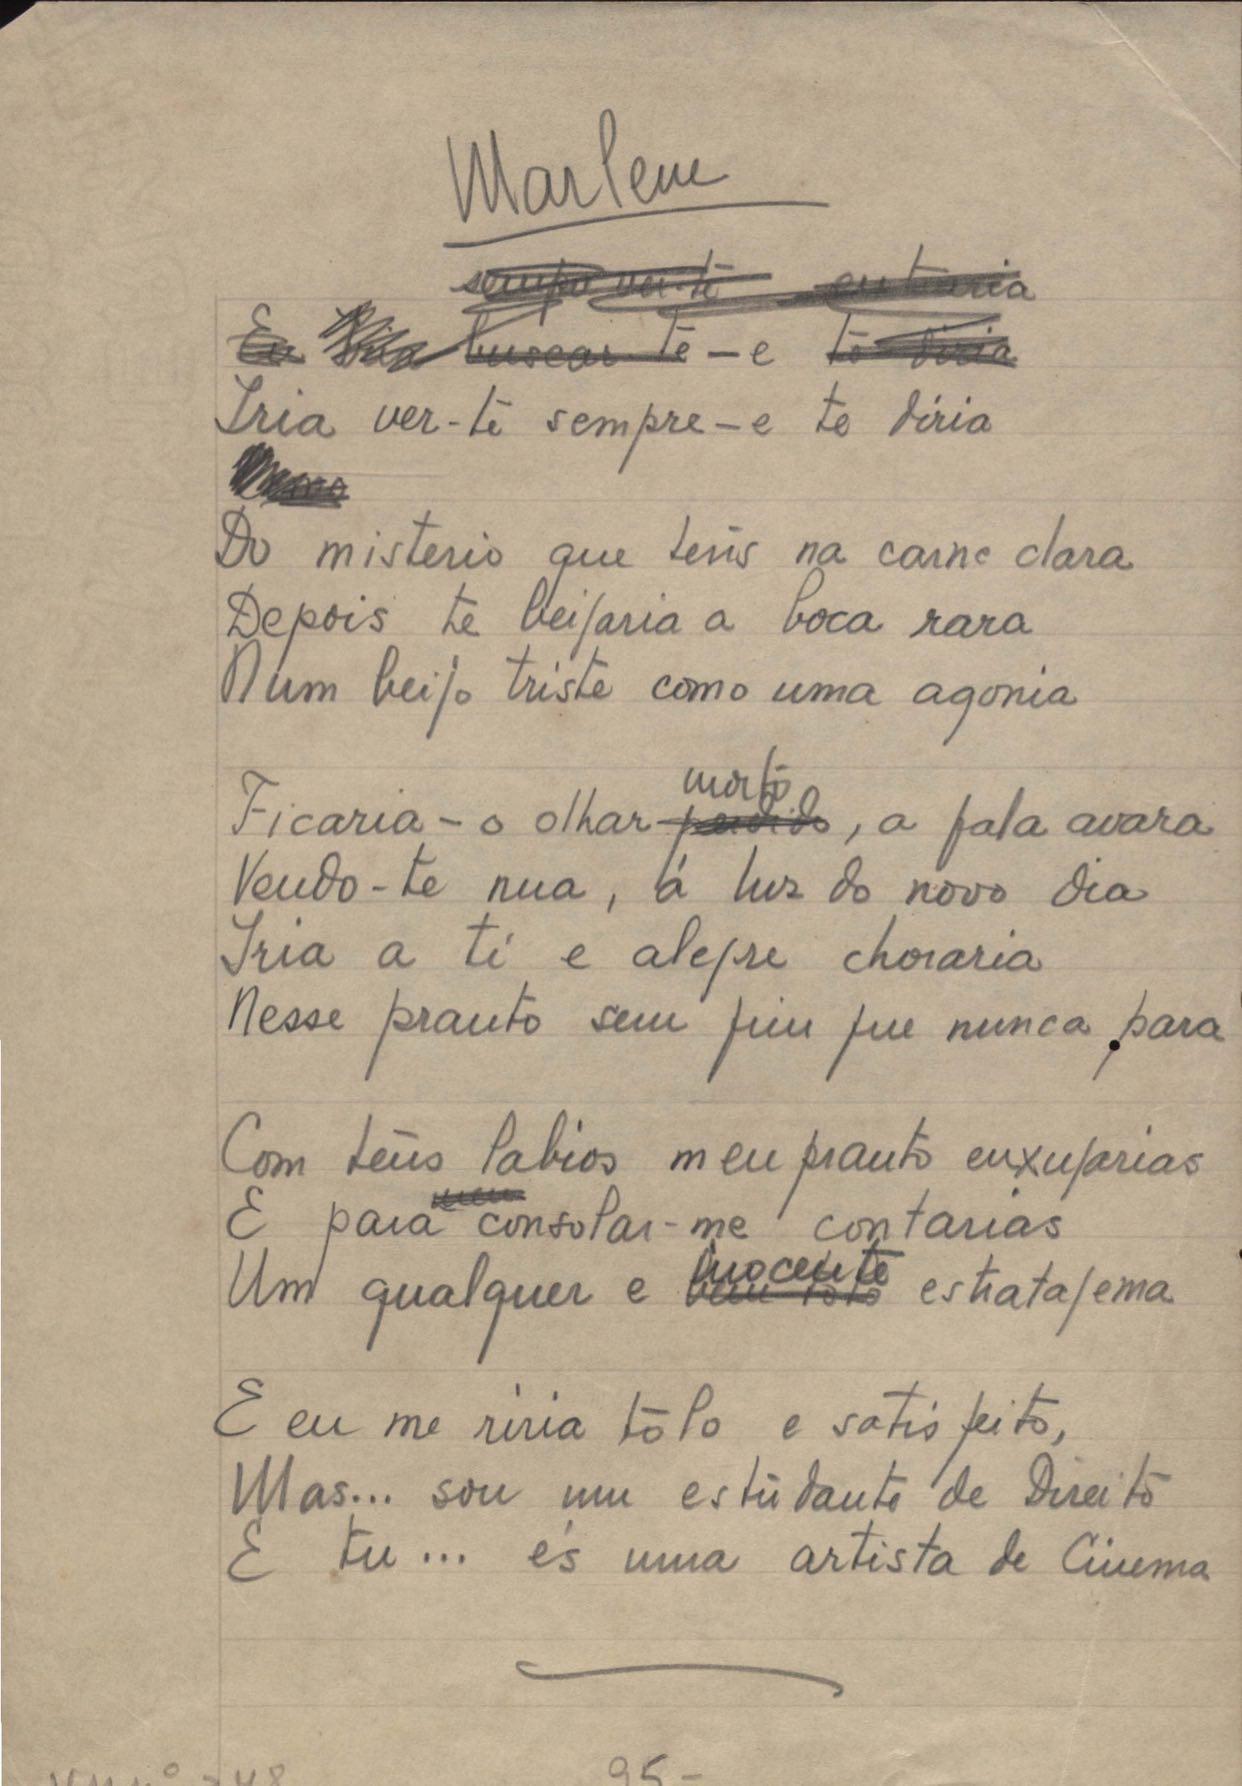 Marlene
sempre ver-te entraria
Eu iria buscar-te - e te diria
Iria ver-te sempre - e te diria
Do misterio que tens na carne clara
Depois te beijaria a boca rara
Num beijo triste como uma agonia
morto
Ficaria - o olhar perdido, a fala avara
Vendo-te nua, á luz do novo dia
Iria a ti e alegre choraria
Nesse pranto sem fim que nunca para
Com teus labios meu pranto enxugarias
meu
E para consolar-me contarias
inocente
Um qualquer e bem tolo estratagema
E eu me riria tôlo e satisfeito,
Mas... sou um estudante de Direito
E tu... és uma artista de Cinema
95-